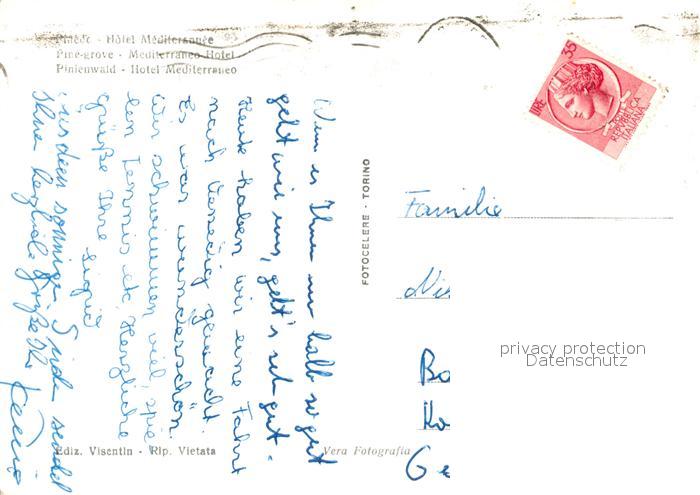 Pinède - Hôtel Méditerranée
Pine-grove - Mediterraneo Hotel
Pinienwald - Hotel Mediterraneo
Wenn es Ihnen nur halb so gut
geht wie uns, geht's sehr gut.
Heute haben wir eine Fahrt
nach Venedig gemacht.
Es war wunderschön.
Wir schwimmen viel, spie
len Tennis etc. Herzliche
Grüße Ihre
Sigrid
Aus dem sonnigen Süden sendet
Ihnen herzliche Grüße Ihr
Ediz. Visentin - Rip. Vietata
Vera Fotografia
FOTOCELERE - TORINO
35
LIRE
POSTE
REPVBBLICA
ITALIANA
Familie
Ni
privacy protection
Datenschutz
Bo
Ko
Ge